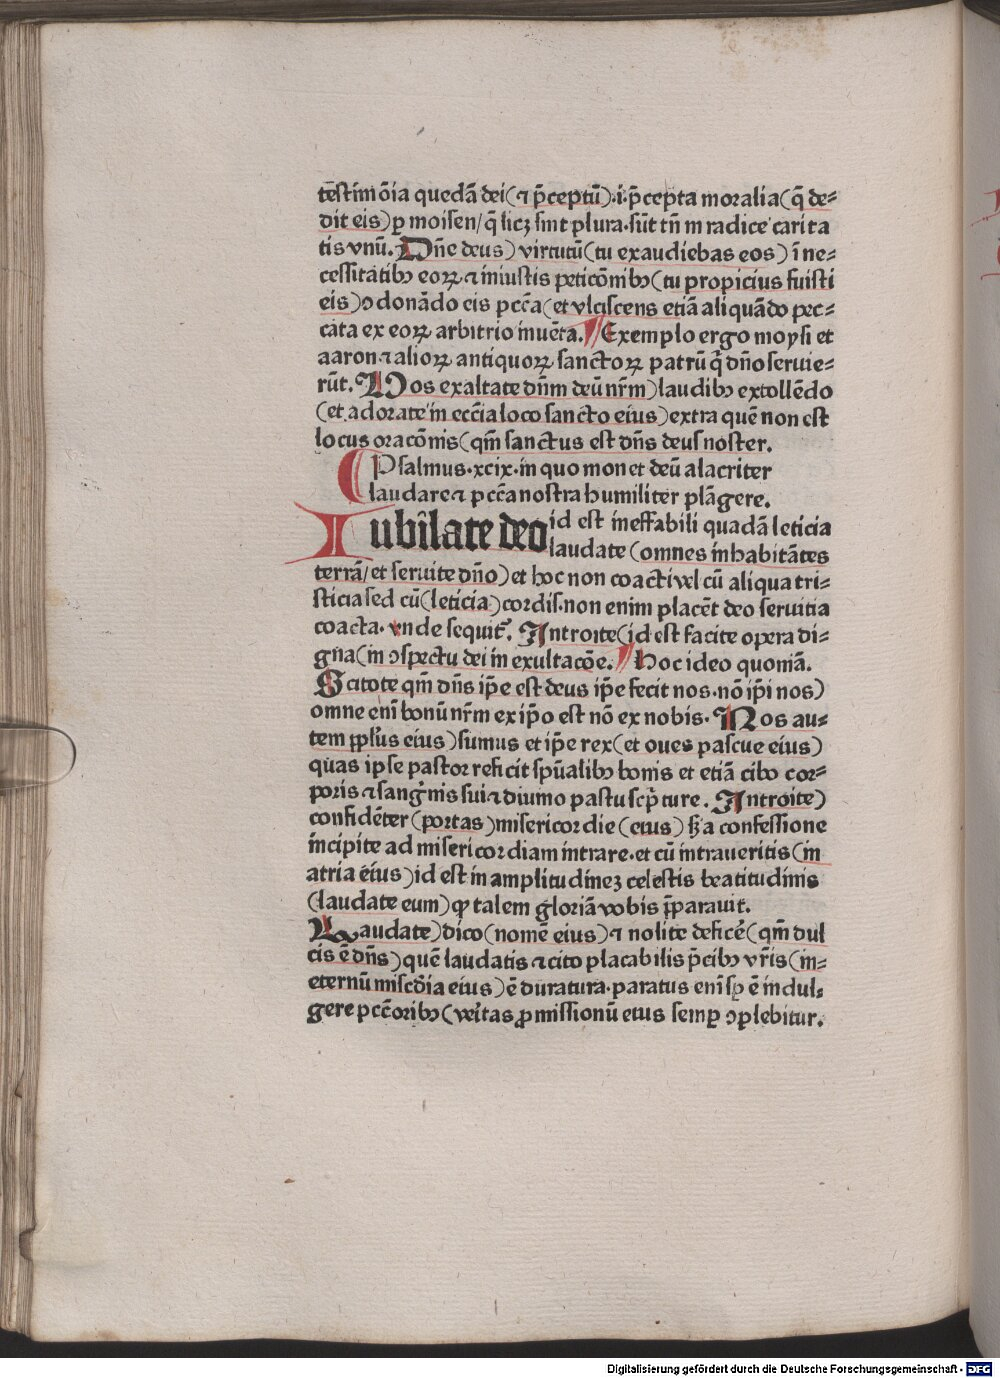 testimōia quedā dei(⁊ p̄ceptū).i.p̄cepta moralia(q̄ de⸗
dit eis)ꝑ moisen/q̄ licꝫ sint plura.sūt tn̄ in radice carita
tis vnū. Dn̄e deus)virtutū(tu exaudiebas eos)ī ne⸗
cessitatibꝰ eoꝝ ⁊ iniustis peticōnibꝰ(tu propicius fuisti
eis)ↄdonādo eis pctā(et vlciscens etiā aliquādo pec⸗
cata ex eoꝝ arbitrio inuēta. Exemplo ergo moysi et
aaron ⁊ alioꝝ antiquoꝝ sanctoꝝ patrū q̄ dn̄o seruie⸗
rūt. Vos exaltate dn̄m deū nr̄m)laudibꝰ extollēdo
(et adorate in ecc̄ia loco sancto eius)extra quē non est
locus oracōnis(qm̄ sanctus est dn̄s deus noster.
Psalmus.xcix.in quo monet deū alacriter
laudare ⁊ pctā nostra humiliter plāgere.
Iubilate deo id est ineffabili quadā leticia
laudate(omnes inhabitātes
terrā/et seruite dn̄o)et hoc non coacti vel cū aliqua tri⸗
sticia sed cū(leticia)cordis.non enim placēt deo seruitia
coacta.vnde sequit᷑. Introite(id est facite opera di⸗
gna(in ↄspectu dei in exultacōe. Hoc ideo quoniā.
Scitote qm̄ dn̄s ip̄e est deus ip̄e fecit nos.nō ip̄i nos)
omne eni bonū nr̄m ex ip̄o est nō ex nobis. Nos au⸗
tem pp̄l'us eius)sumus et ip̄e rex(et oues pascue eius)
quas ipse pastor reficit sp̄ualibꝰ bonis et etiā cibo cor⸗
poris ⁊ sangʼnis sui ⁊ diuino pastu scp̄ture. Introite)
confidēter(portas)misericordie(eius)ꝟa confessione
incipite ad misericordiam intrare.et cū intraueritis(in
atria eius)id est in amplitudinez celestis beatitudinis
(laudate eum)ꝙ talem gloriā vobis p̄parauit.
Laudate)dico(nomē eius)⁊ nolite deficē(qm̄ dul
cis ē dn̄s)quē laudatis ⁊ cito placabilis p̄cibꝰ vr̄is(in⸗
eternū misc̄dia eius)ē duratura.paratus eni sꝑ ē indul⸗
gere pctōribꝰ(veītas ꝓmissionū eius semꝑ ↄplebitur.
Digitalisierung gefördert durch die Deutsche Forschungsgemeinschaft - DFG